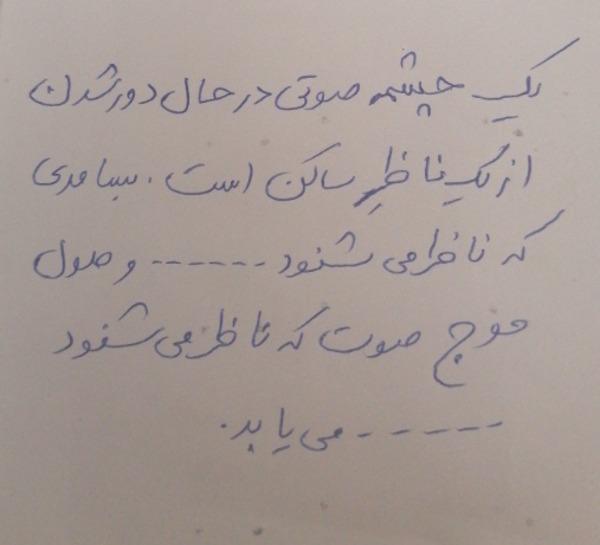 یک چشمه صوتی در حال دور شدن
از یک ناظر ساکن است. بسامدی
که ناظر می شنود ------ و طول
موج صوت که ناظر می شنود
------ می یابد.